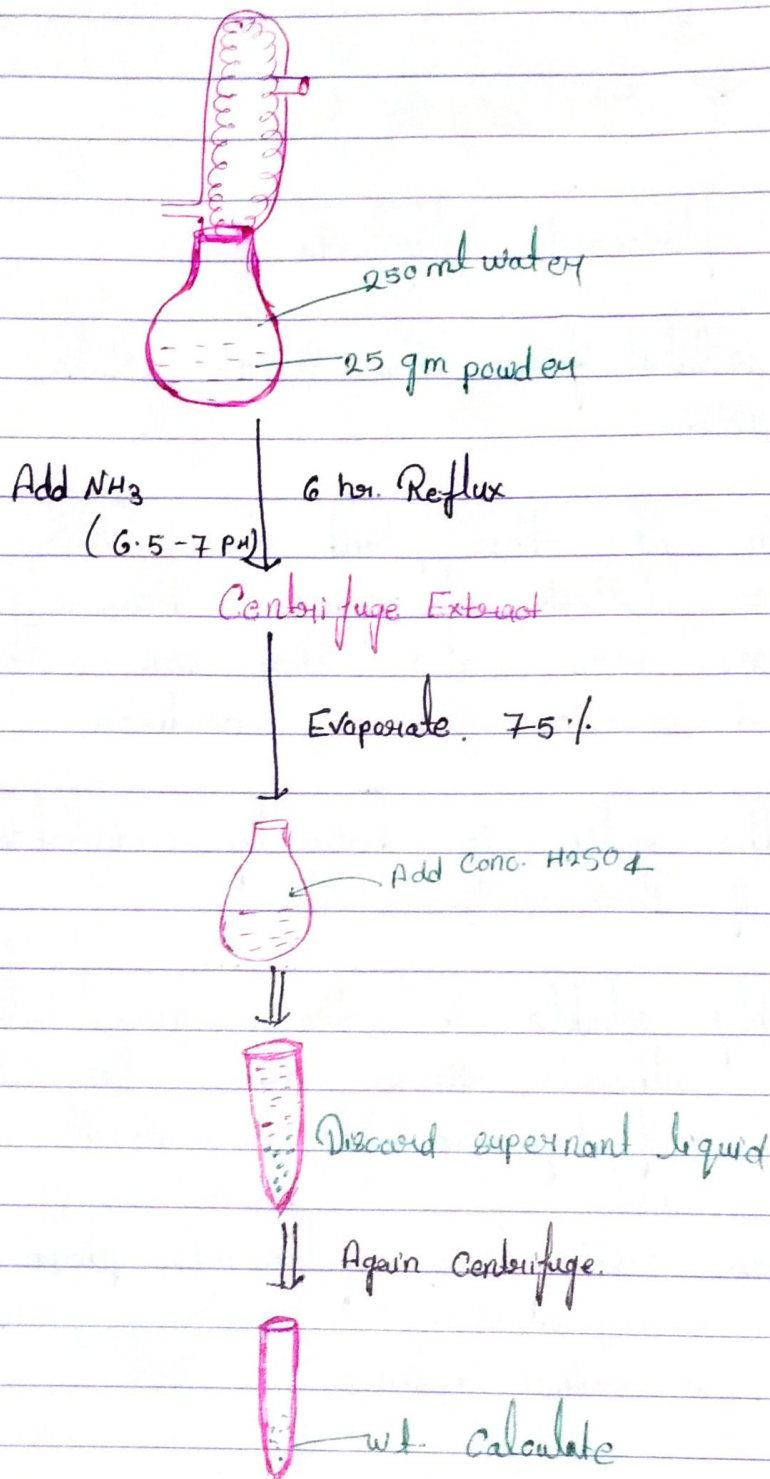 250 ml water
25 gm powder
Add NH3 6 hr. Reflux
(6.5-7 PH)
Centrifuge Extract
Evaporate. 75%
Add Conc. H2SO4
Discard supernant liquid
Again Centrifuge.
wt. Calculate